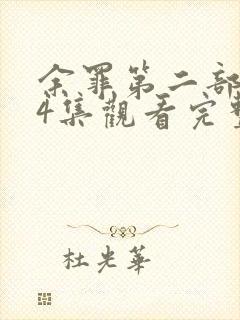 余罪第二部
4集觀看完整
杜光華